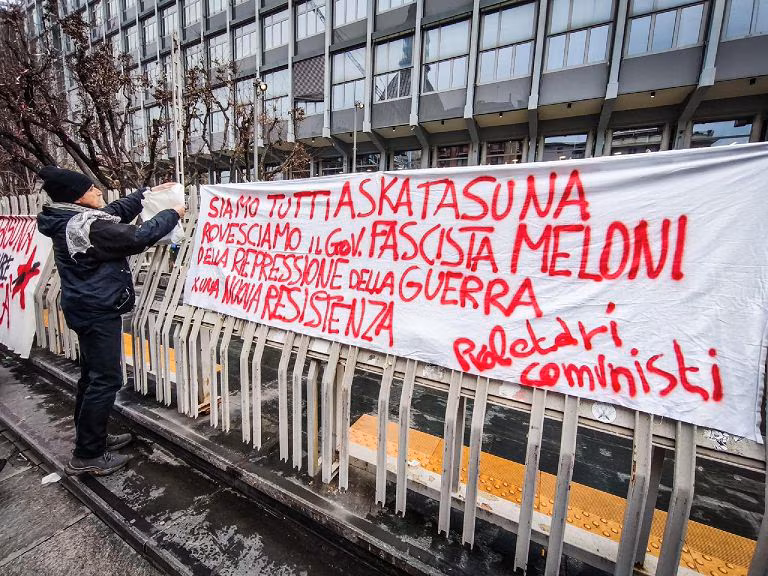 SIAMO TUTTI ASKATASUNA
ROVESCIAMO IL GOV. FASCISTA MELONI
DELLA REPRESSIONE DELLA GUERRA
X UNA NUOVA RESISTENZA
Proletari
comunisti